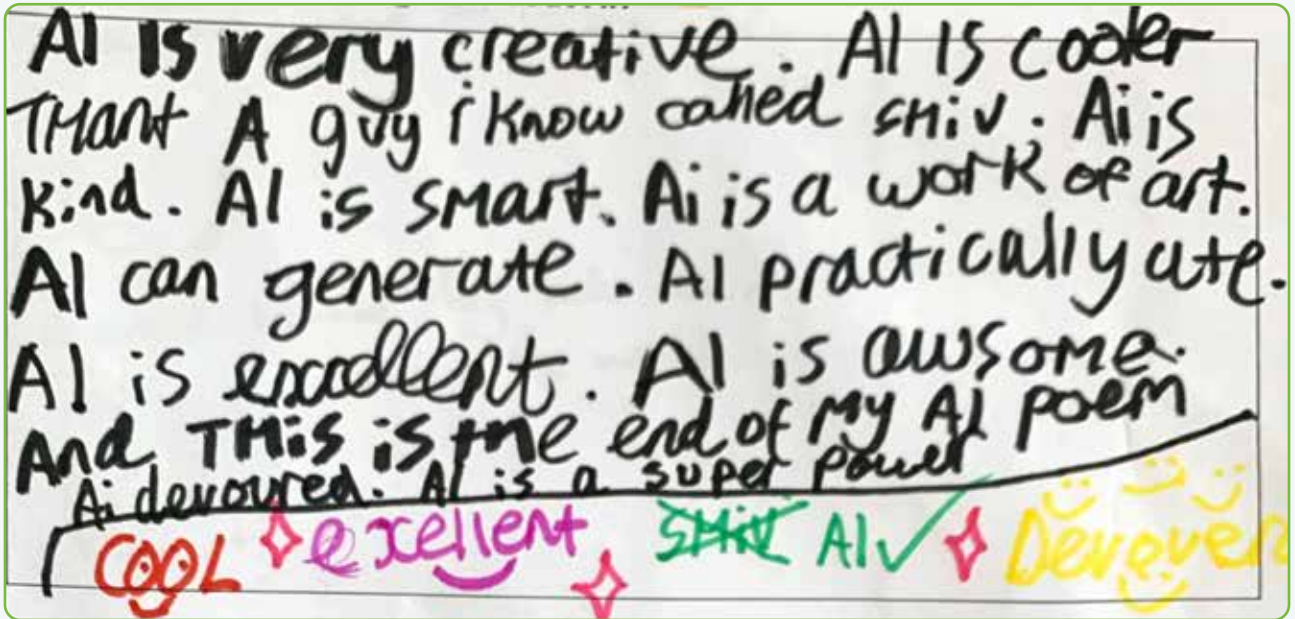 AI Is very creative. AI IS cooler
THant A guy i know called SHiv. Ai is
kind. AI is smart. Ai is a work of art.
AI can generate. AI practically ate.
AI is excellent. AI is awsome.
And THis is the end of My AI poem
Ai devoured. AI is a super power
COOL exellent SHiV AI